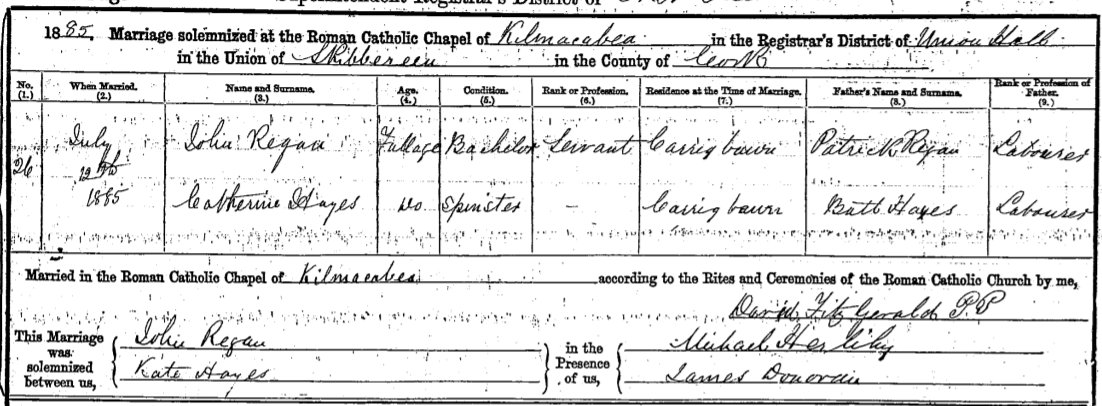 Superintendent Registrar's District of
1885. Marriage solemnized at the Roman Catholic Chapel of Kilmacabea in the Registrar's District of Union Hall
in the Union of Skibbereen in the County of Cork
No. (1.) When Married. (2.) Name and Surname. (3.) Age. (4.) Condition. (5.) Rank or Profession. (6.) Residence at the Time of Marriage. (7.) Father's Name and Surname. (8.) Rank or Profession of Father. (9.)
26 July 12th 1885 John Regan Fullage Bachelor Servant Carrigbawn Patrick Regan Labourer
Catherine Hayes Do Spinster — Carrigbawn Batt Hayes Labourer
Married in the Roman Catholic Chapel of Kilmacabea according to the Rites and Ceremonies of the Roman Catholic Church by me,
David FitzGerald P.P
This Marriage was solemnized between us, John Regan in the Presence of us, Michael Herlihy
Kate Hayes James Donovan